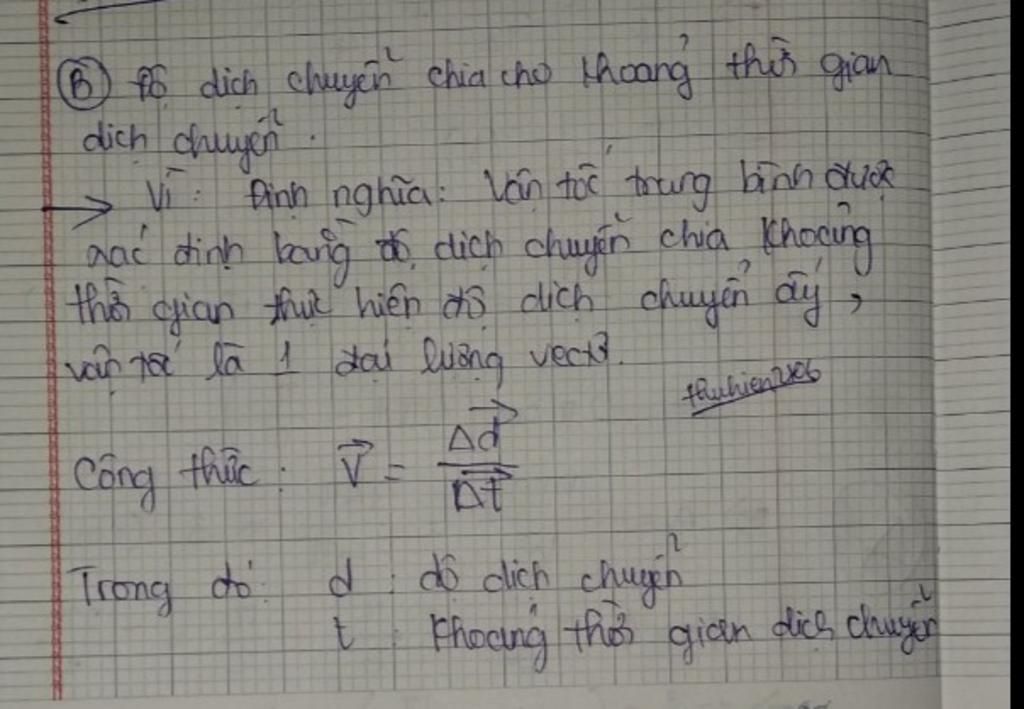 Ⓑ Độ dịch chuyển chia cho khoảng thời gian
dịch chuyển.
→ Vì: Định nghĩa: Vận tốc trung bình được
xác định bằng độ dịch chuyển chia khoảng
thời gian thực hiện độ dịch chuyển ấy,
vận tốc là 1 đại lượng vectơ.
thuhien2406
Công thức: \vec{V} = \frac{\vec{Δd}}{\vec{Δt}}
Trong đó: d : độ dịch chuyển
t : khoảng thời gian dịch chuyển